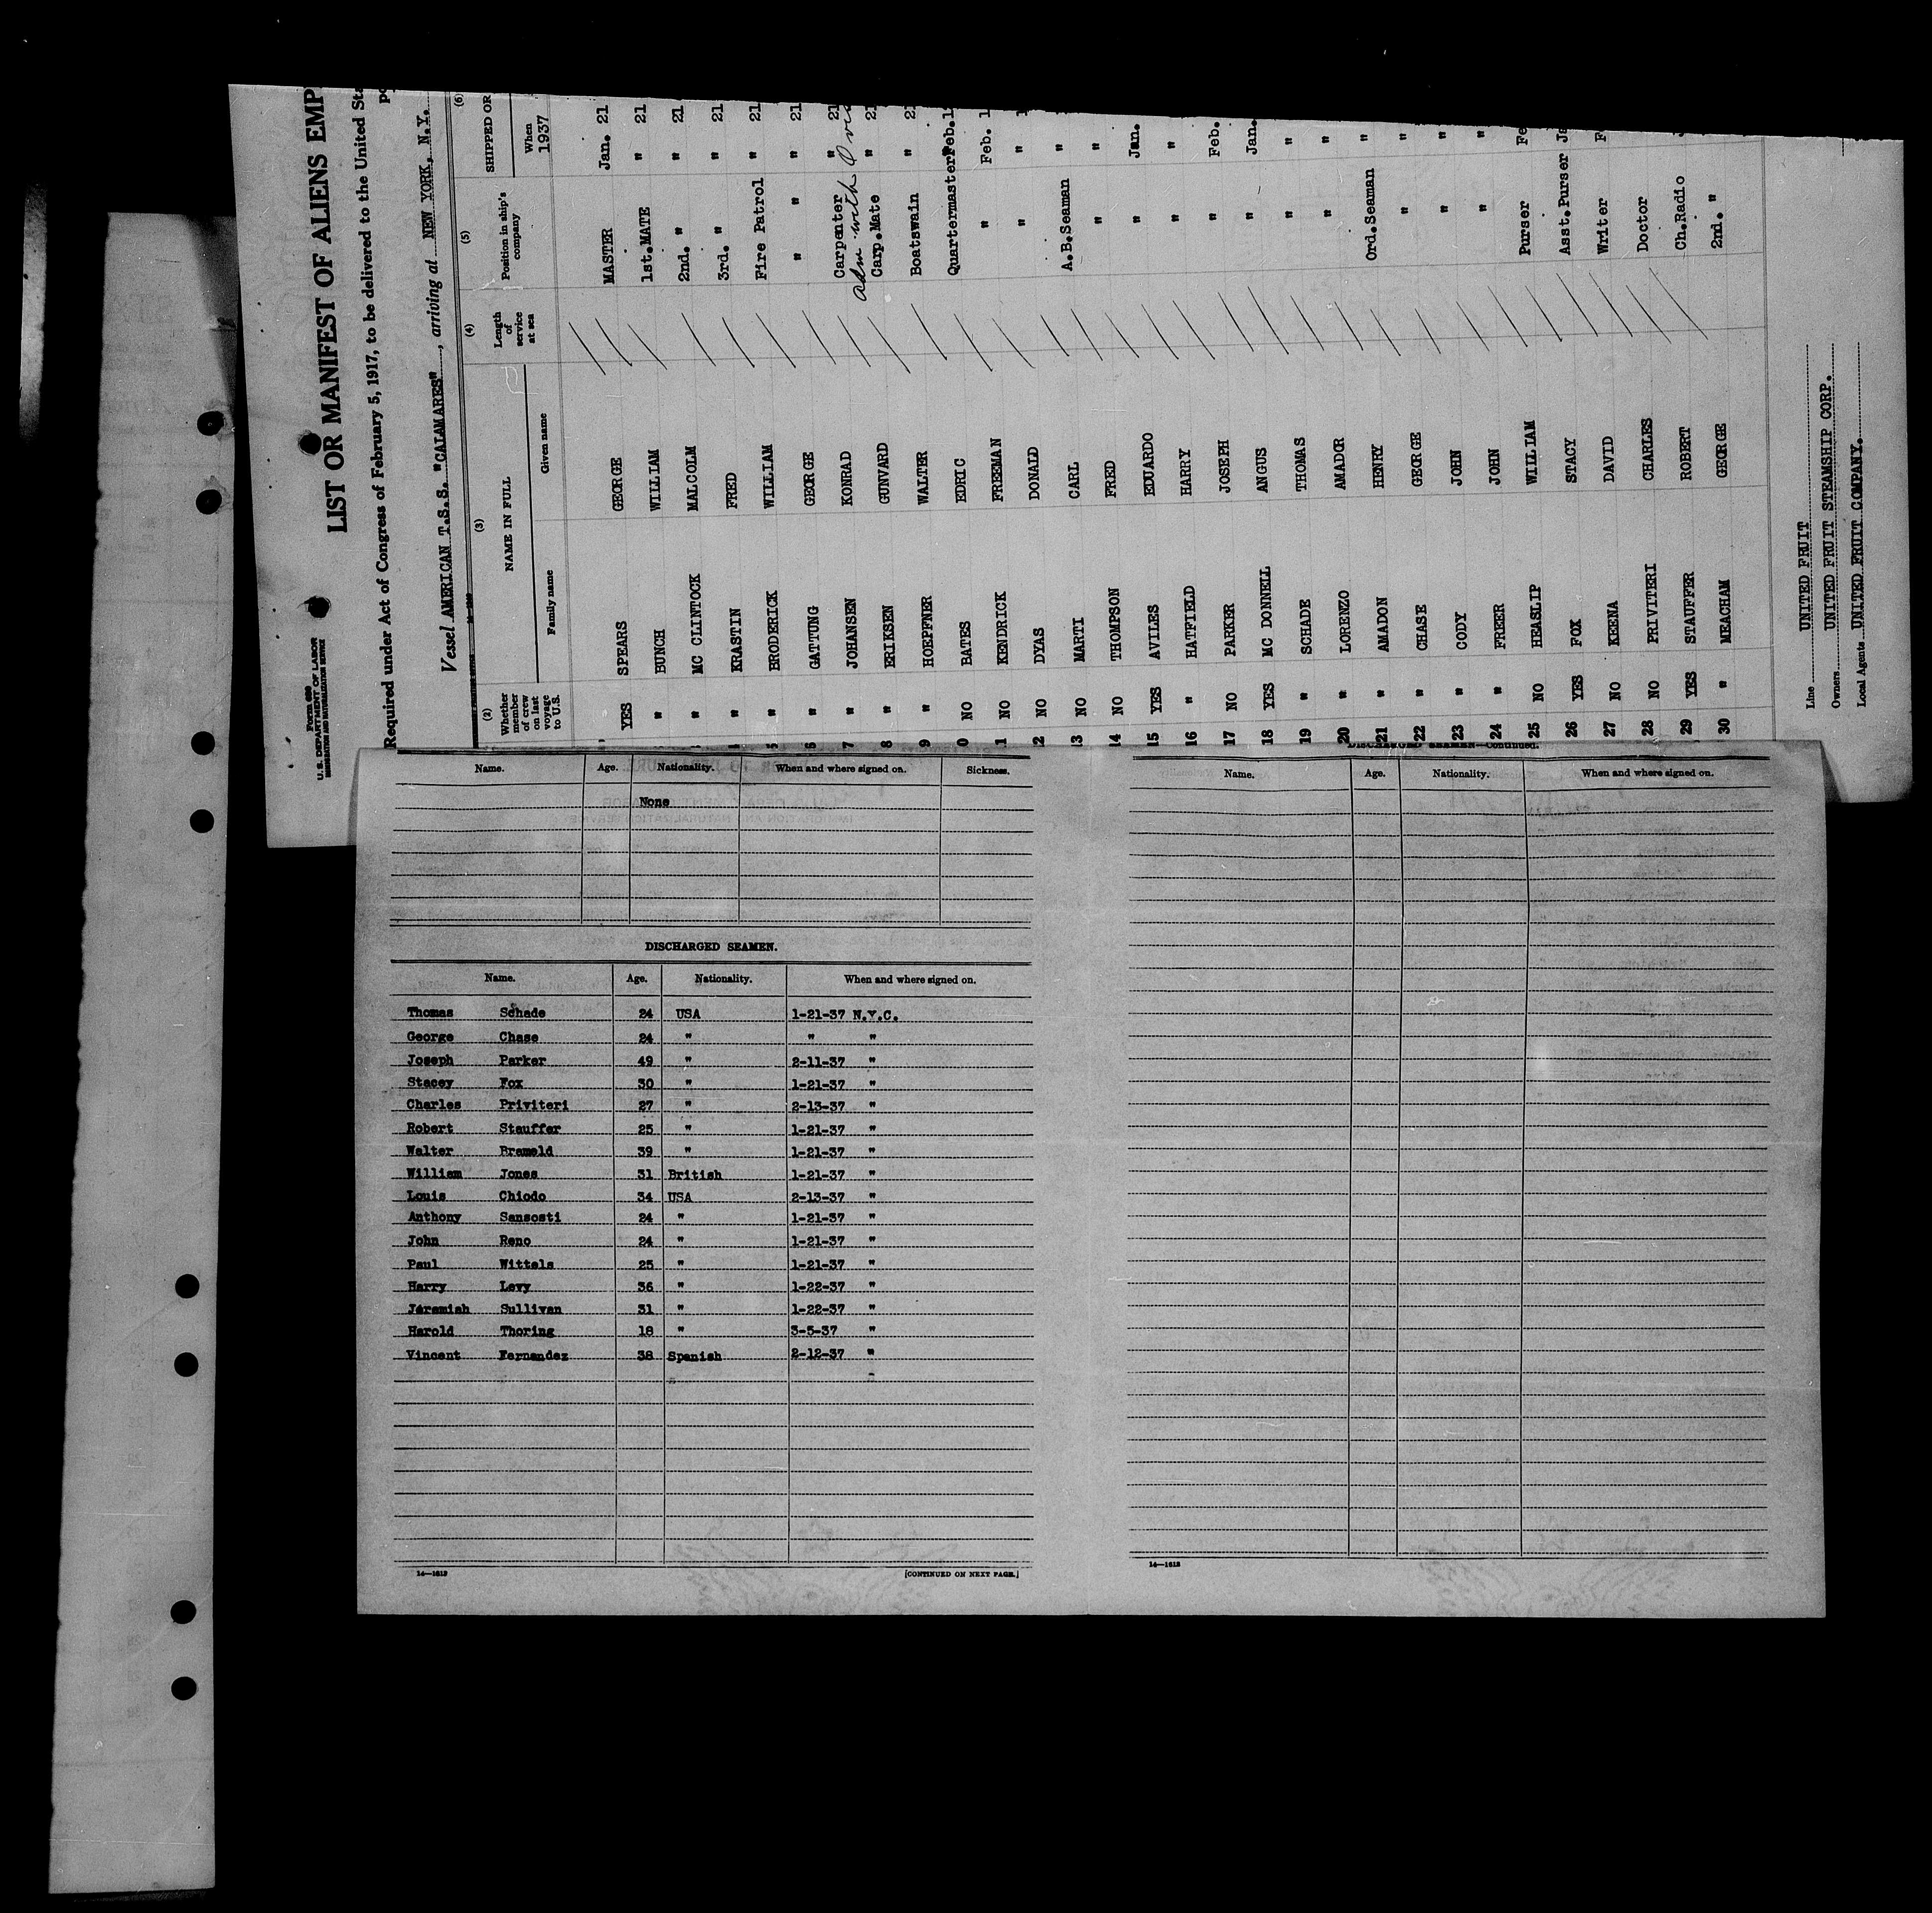 Form 680
U. S. DEPARTMENT OF LABOR
IMMIGRATION AND NATURALIZATION SERVICE
LIST OR MANIFEST OF ALIENS EMP
Required under Act of Congress of February 5, 1917, to be delivered to the United Sta
Vessel AMERICAN T.S.S. "CALAMARES", arriving at NEW YORK, N.Y.
(2) (3) (4) (5) (6)
Whether member of crew on last voyage to U.S. NAME IN FULL Family name Given name Length of service at sea Position in ship's company SHIPPED OR When 1937
YES SPEARS GEORGE MASTER Jan. 21
" BUNCH WILLIAM 1st.MATE " 21
" MC CLINTOCK MALCOLM 2nd. " " 21
" KRASTIN FRED 3rd. " " 21
5 " BRODERICK WILLIAM Fire Patrol " 21
6 " GATTUNG GEORGE " " " 21
7 " JOHANSEN KONRAD Carpenter " 21
adm with
8 " ERIKSEN GUNVARD Carp.Mate " 21
9 " HOEPFNER WALTER Boatswain " 21
0 NO BATES EDRIC Quartermaster Feb.1
1 NO KENDRICK FREEMAN " Feb. 1
2 NO DYAS DONALD " " 1
13 NO MARTI CARL A.B.Seaman "
14 NO THOMPSON FRED " "
15 YES AVILES EDUARDO " Jan.
16 " HATFIELD HARRY " "
17 NO PARKER JOSEPH " Feb.
18 YES MC DONNELL ANGUS " Jan.
19 " SCHADE THOMAS " "
20 " LORENZO AMADOR " "
21 " AMADON HENRY Ord.Seaman "
22 " CHASE GEORGE " "
23 " CODY JOHN " "
24 " FREER JOHN " "
25 NO HEASLIP WILLIAM Purser Fe
26 YES FOX STACY Asst.Purser Ja
27 NO KEENA DAVID Writer F
28 NO PRIVITERI CHARLES Doctor
29 YES STAUFFER ROBERT Ch.Radio J
30 " MEACHAM GEORGE 2nd. "
Line UNITED FRUIT
Owners UNITED FRUIT STEAMSHIP CORP.
Local Agents UNITED FRUIT COMPANY.
Name. Age. Nationality. When and where signed on. Sickness.
None
DISCHARGED SEAMEN.
Name. Age. Nationality. When and where signed on.
Thomas Schade 24 USA 1-21-37 N.Y.C.
George Chase 24 " " "
Joseph Parker 49 " 2-11-37 "
Stacey Fox 30 " 1-21-37 "
Charles Priviteri 27 " 2-13-37 "
Robert Stauffer 25 " 1-21-37 "
Walter Brameld 39 " 1-21-37 "
William Jones 31 British 1-21-37 "
Louis Chiodo 34 USA 2-13-37 "
Anthony Sansosti 24 " 1-21-37 "
John Reno 24 " 1-21-37 "
Paul Wittels 25 " 1-21-37 "
Harry Levy 36 " 1-22-37 "
Jeremiah Sullivan 31 " 1-22-37 "
Harold Thoring 18 " 3-5-37 "
Vincent Fernandez 38 Spanish 2-12-37 "
14—1613 [CONTINUED ON NEXT PAGE.]
DISCHARGED SEAMEN—Continued.
Name. Age. Nationality. When and where signed on.
14—1613